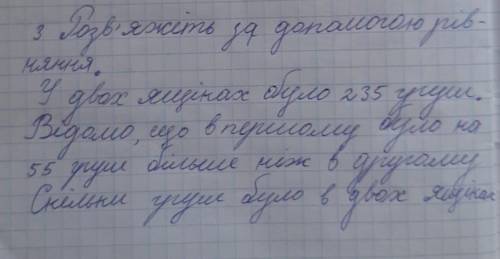 3 Розв'яжіть за допомогою рів-
няння.
У двох ящиках було 235 груш.
Відомо, що в першому було на
55 груш більше ніж в другому
Скільки груш було в двох ящиках